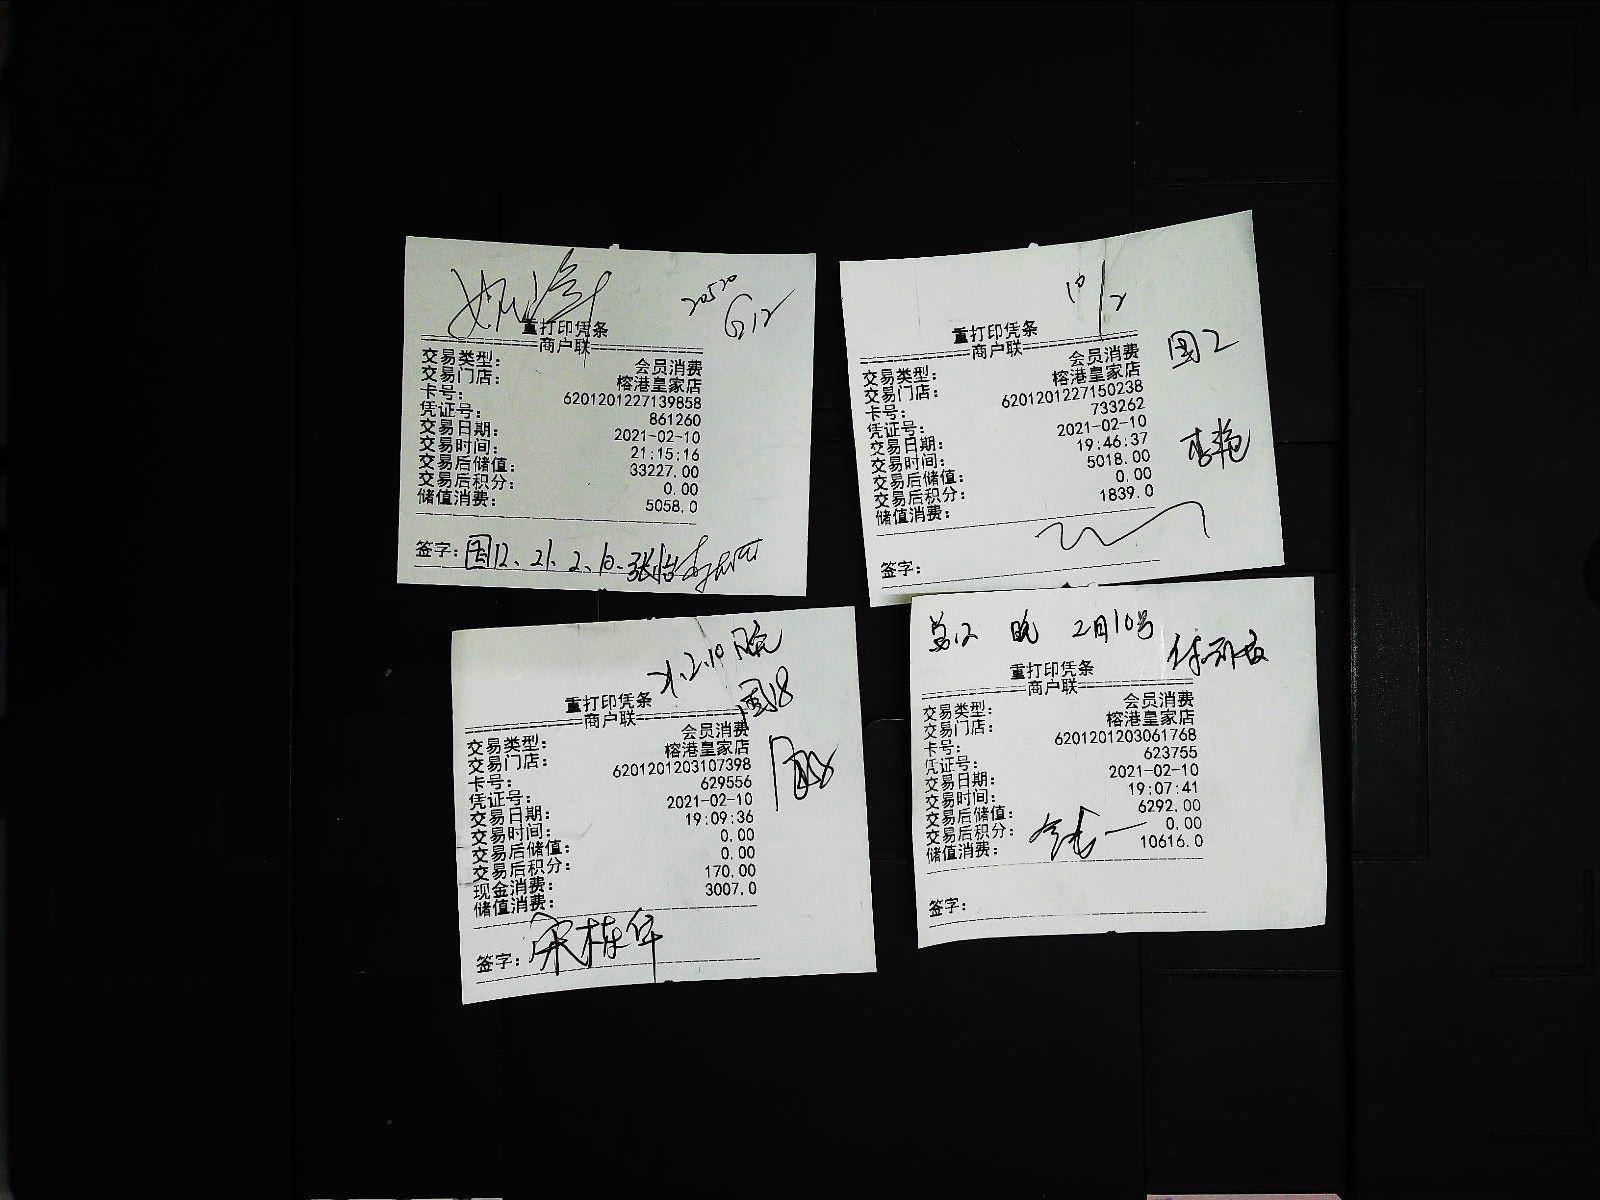 20520
G12
重打印凭条
商户联
交易类型: 会员消费
交易门店: 榕港皇家店
卡号: 6201201227139858
凭证号: 861260
交易日期: 2021-02-10
交易时间: 21:15:16
交易后储值: 33227.00
交易后积分: 0.00
储值消费: 5058.0
签字: 国12、21、2、10、张怡
10/2
国2
李艳
重打印凭条
商户联
交易类型: 会员消费
交易门店: 榕港皇家店
卡号: 6201201227150238
凭证号: 733262
交易日期: 2021-02-10
交易时间: 19:46:37
交易后储值: 5018.00
交易后积分: 0.00
储值消费: 1839.0
签字:
21.2.10晚
国18
重打印凭条
商户联
交易类型: 会员消费
交易门店: 榕港皇家店
卡号: 6201201203107398
凭证号: 629556
交易日期: 2021-02-10
交易时间: 19:09:36
交易后储值: 0.00
交易后积分: 0.00
现金消费: 170.00
储值消费: 3007.0
签字: 宋栋年
12 晚 2月10号
重打印凭条
商户联
交易类型: 会员消费
交易门店: 榕港皇家店
卡号: 6201201203061768
凭证号: 623755
交易日期: 2021-02-10
交易时间: 19:07:41
交易后储值: 6292.00
交易后积分: 0.00
储值消费: 10616.0
签字: